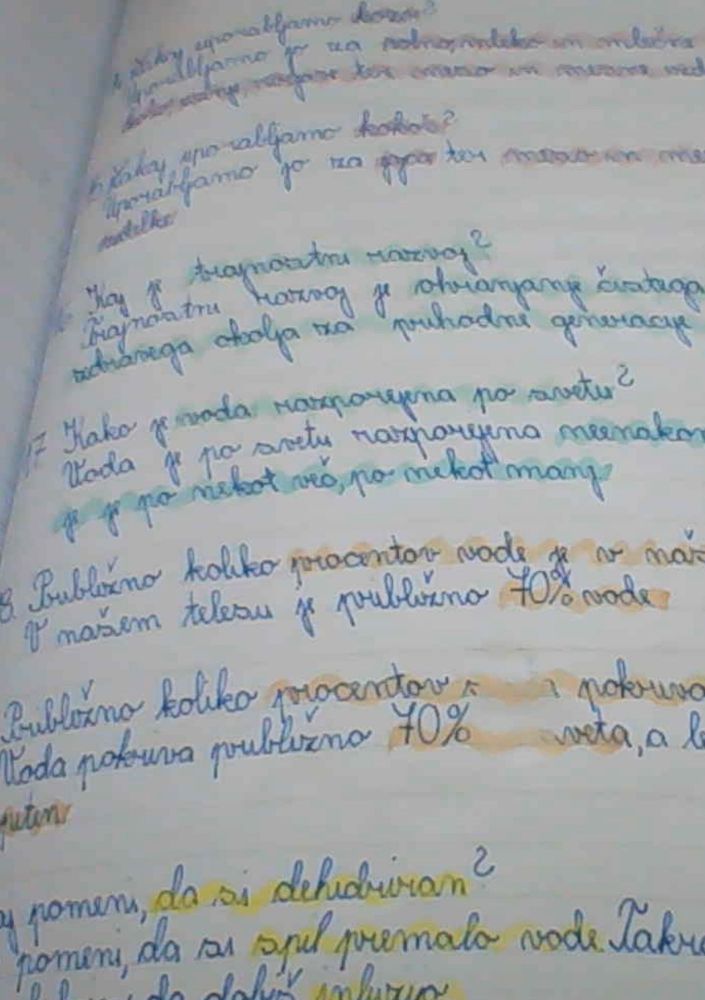 Zakaj uporabljamo kozo?
Uporabljamo jo za volno, mleko in mlečne
kožo, vožnje, rogove ter meso in mesne
Zakaj uporabljamo kokoš?
Uporabljamo jo za jajca ter meso in
izdelke
Kaj je trajnostni razvoj?
Trajnostni razvoj je ohranjanje čistega
zdravega okolja za prihodne generacije
17 Kako je voda razporejena po svetu?
Voda je po svetu razporejena neenakom
je je po nekot več, po nekot manj
8. Približno koliko procentov vode je v naš
V našem telesu je približno 70% vode
Približno koliko procentov pokriva
Voda pokriva približno 70% sveta, a le
piten
pomeni, da si dehidriran?
pomeni, da si spil premalo vode. Takra
da dobiš infuzijo